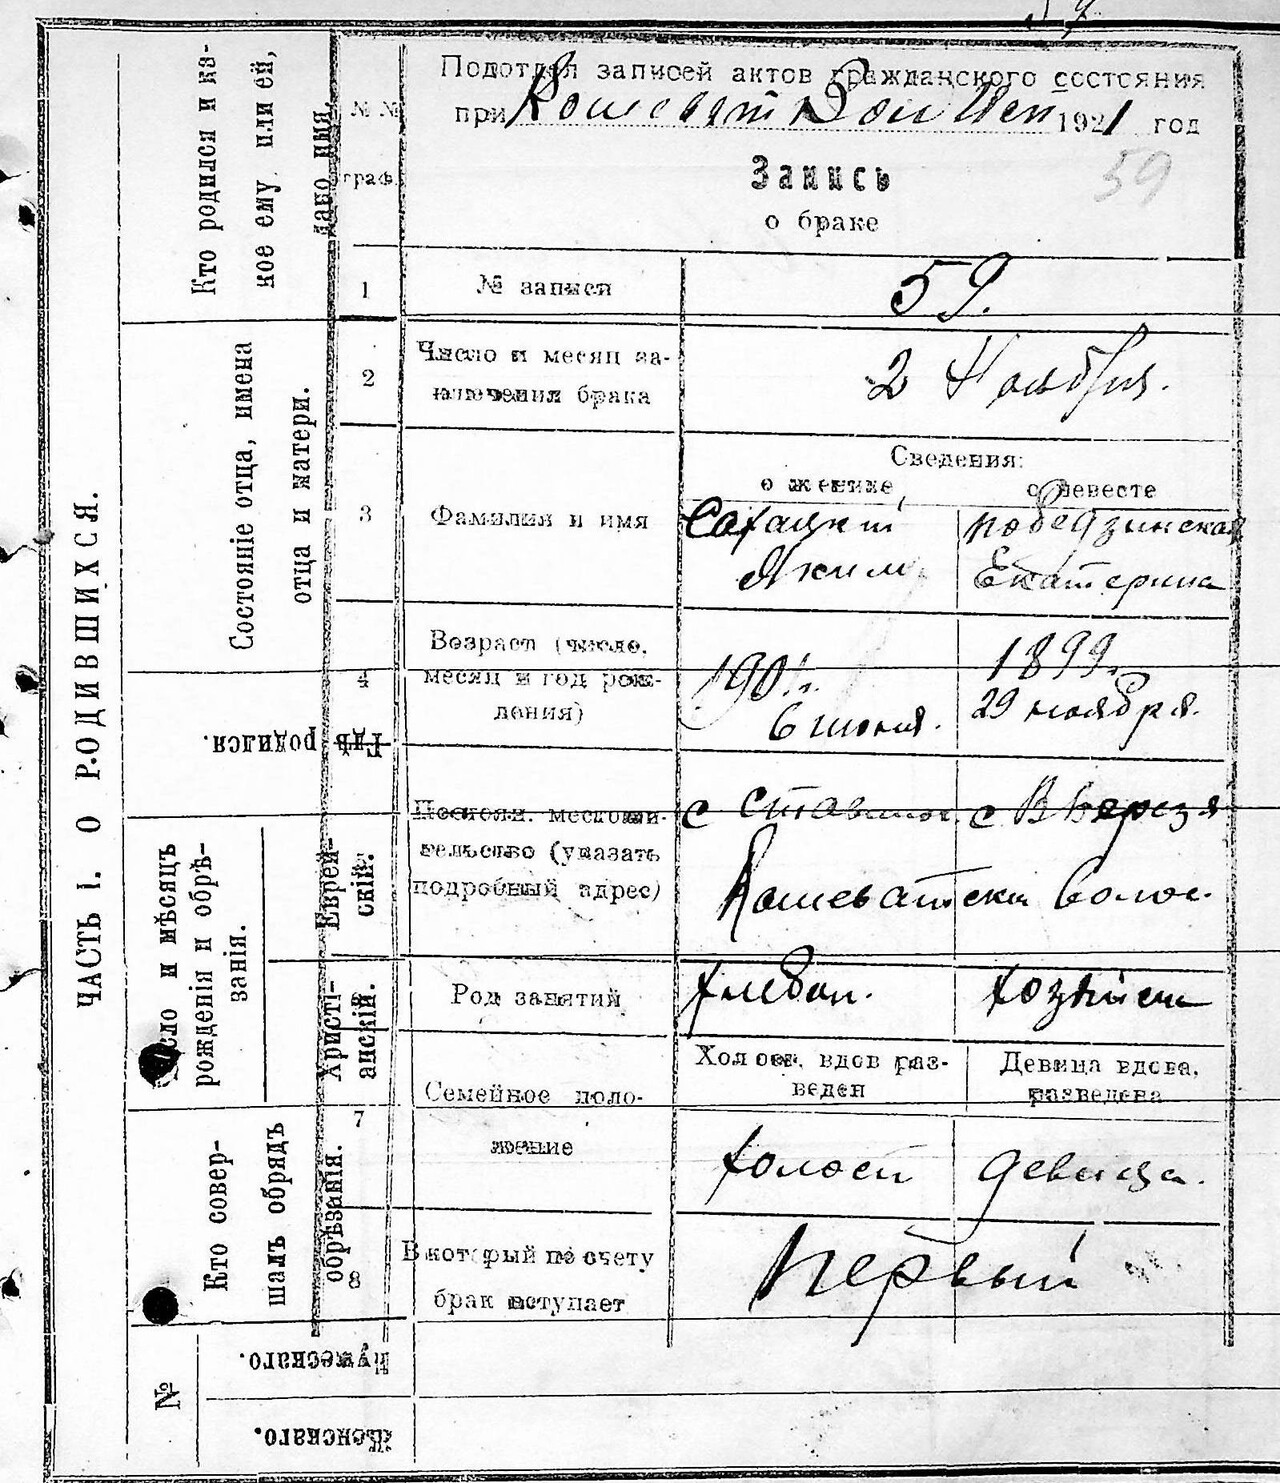 ЧАСТЬ I. О РОДИВШИХСЯ.
Кто родился и ка-
кое ему или ей,
дано имя.
Состояніе отца, имена
отца и матери.
Гдѣ родился.
Число и мѣсяцъ
рожденія и обрѣ-
занія.
Еврей-
скій.
Христі-
анскій.
Кто совер-
шалъ обрядъ
обрѣзанія.
№
Мужескаго.
Женскаго.
№№
граф.
Подотдел записей актов гражданского состояния
при 1921 год
Запись
о браке
59
1
№ записи
59.
2
Число и месяц за-
ключения брака
2 Ноября.
Сведения:
о женихе,
о невесте
3
Фамилия и имя
Сохацкий
Яким
победзинская
Екатерина
4
Возраст (число,
месяц и год рож-
дения)
1901 г.
6 июня.
1899 г.
29 ноября.
Постоян. местожи-
тельство (указать
подробный адрес)
с
с В Березя
Кошеватской волос.
Род занятий
хлебоп.
хозяйка
7
Семейное поло-
жение
Холост. вдов раз-
веден
Девица вдова,
разведена
холост
девица.
8
В который по счету
брак вступает
первый